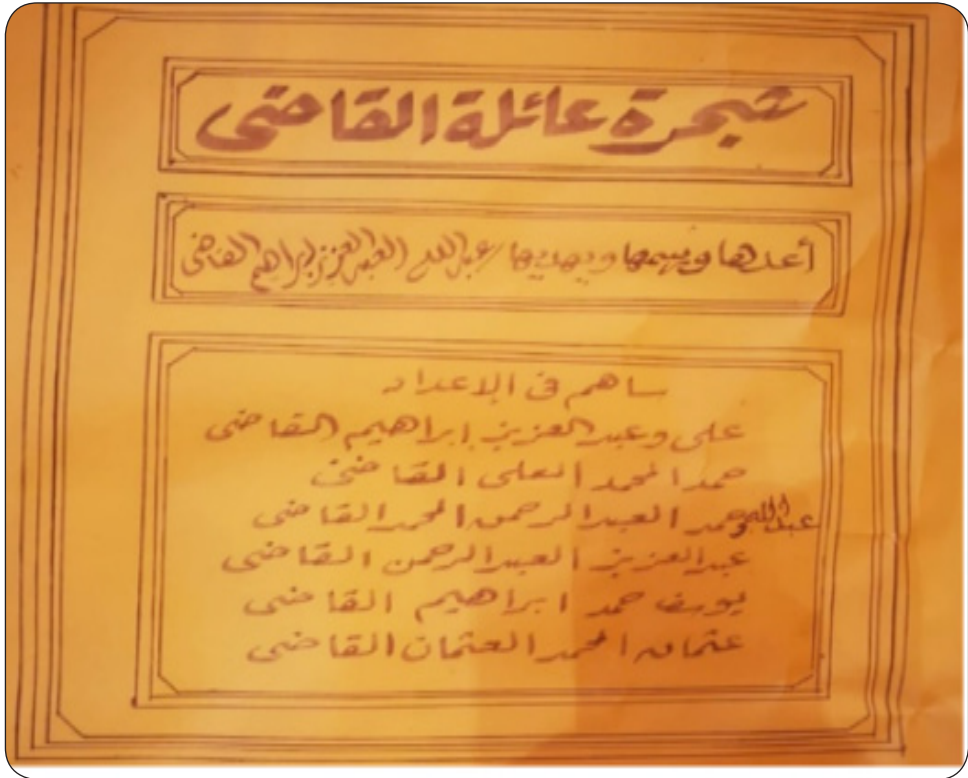 شجرة عائلة القاضى
أعدها ويهديها / عبدالله العبدالعزيز ابراهيم القاضى
ساهم فى الإعداد
على وعبدالعزيز إبراهيم القاضى
حمد المحمد العلى القاضى
عبدالله وحمد العبدالرحمن المحمد القاضى
عبدالعزيز العبدالرحمن القاضى
يوسف حمد ابراهيم القاضى
عثمان المحمد العثمان القاضى